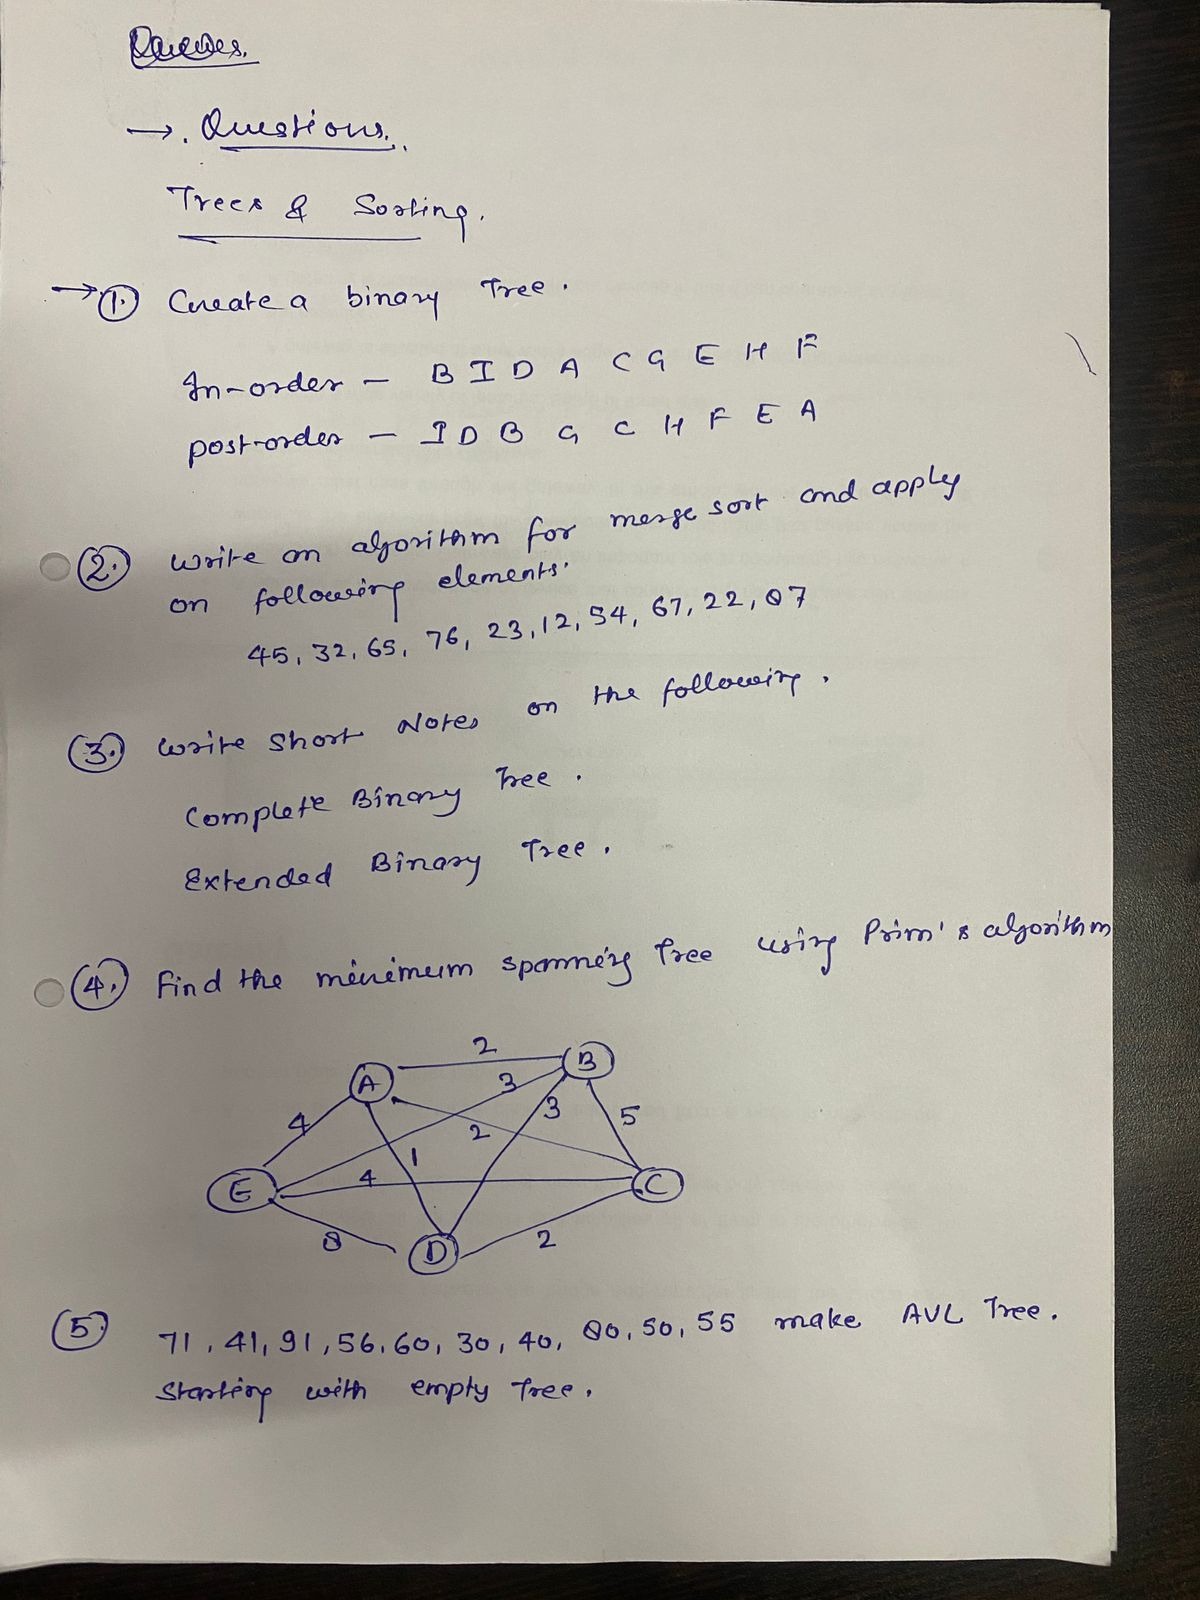 →. Questions.
Trees & Sorting.
→ 1. Create a binary Tree.
In-order - B I D A C G E H F
post-order - I D B G C H F E A
2. write an algorithm for merge sort and apply
on following elements.
45, 32, 65, 76, 23, 12, 54, 67, 22, 07
3. write short Notes on the following.
Complete Binary Tree.
Extended Binary Tree.
4. Find the minimum spanning Tree using Prim's algorithm
2
A B
3
4 3 5
2
1
E 4 C
8 D 2
5. 71, 41, 91, 56, 60, 30, 40, 80, 50, 55 make AVL Tree.
Starting with empty Tree.